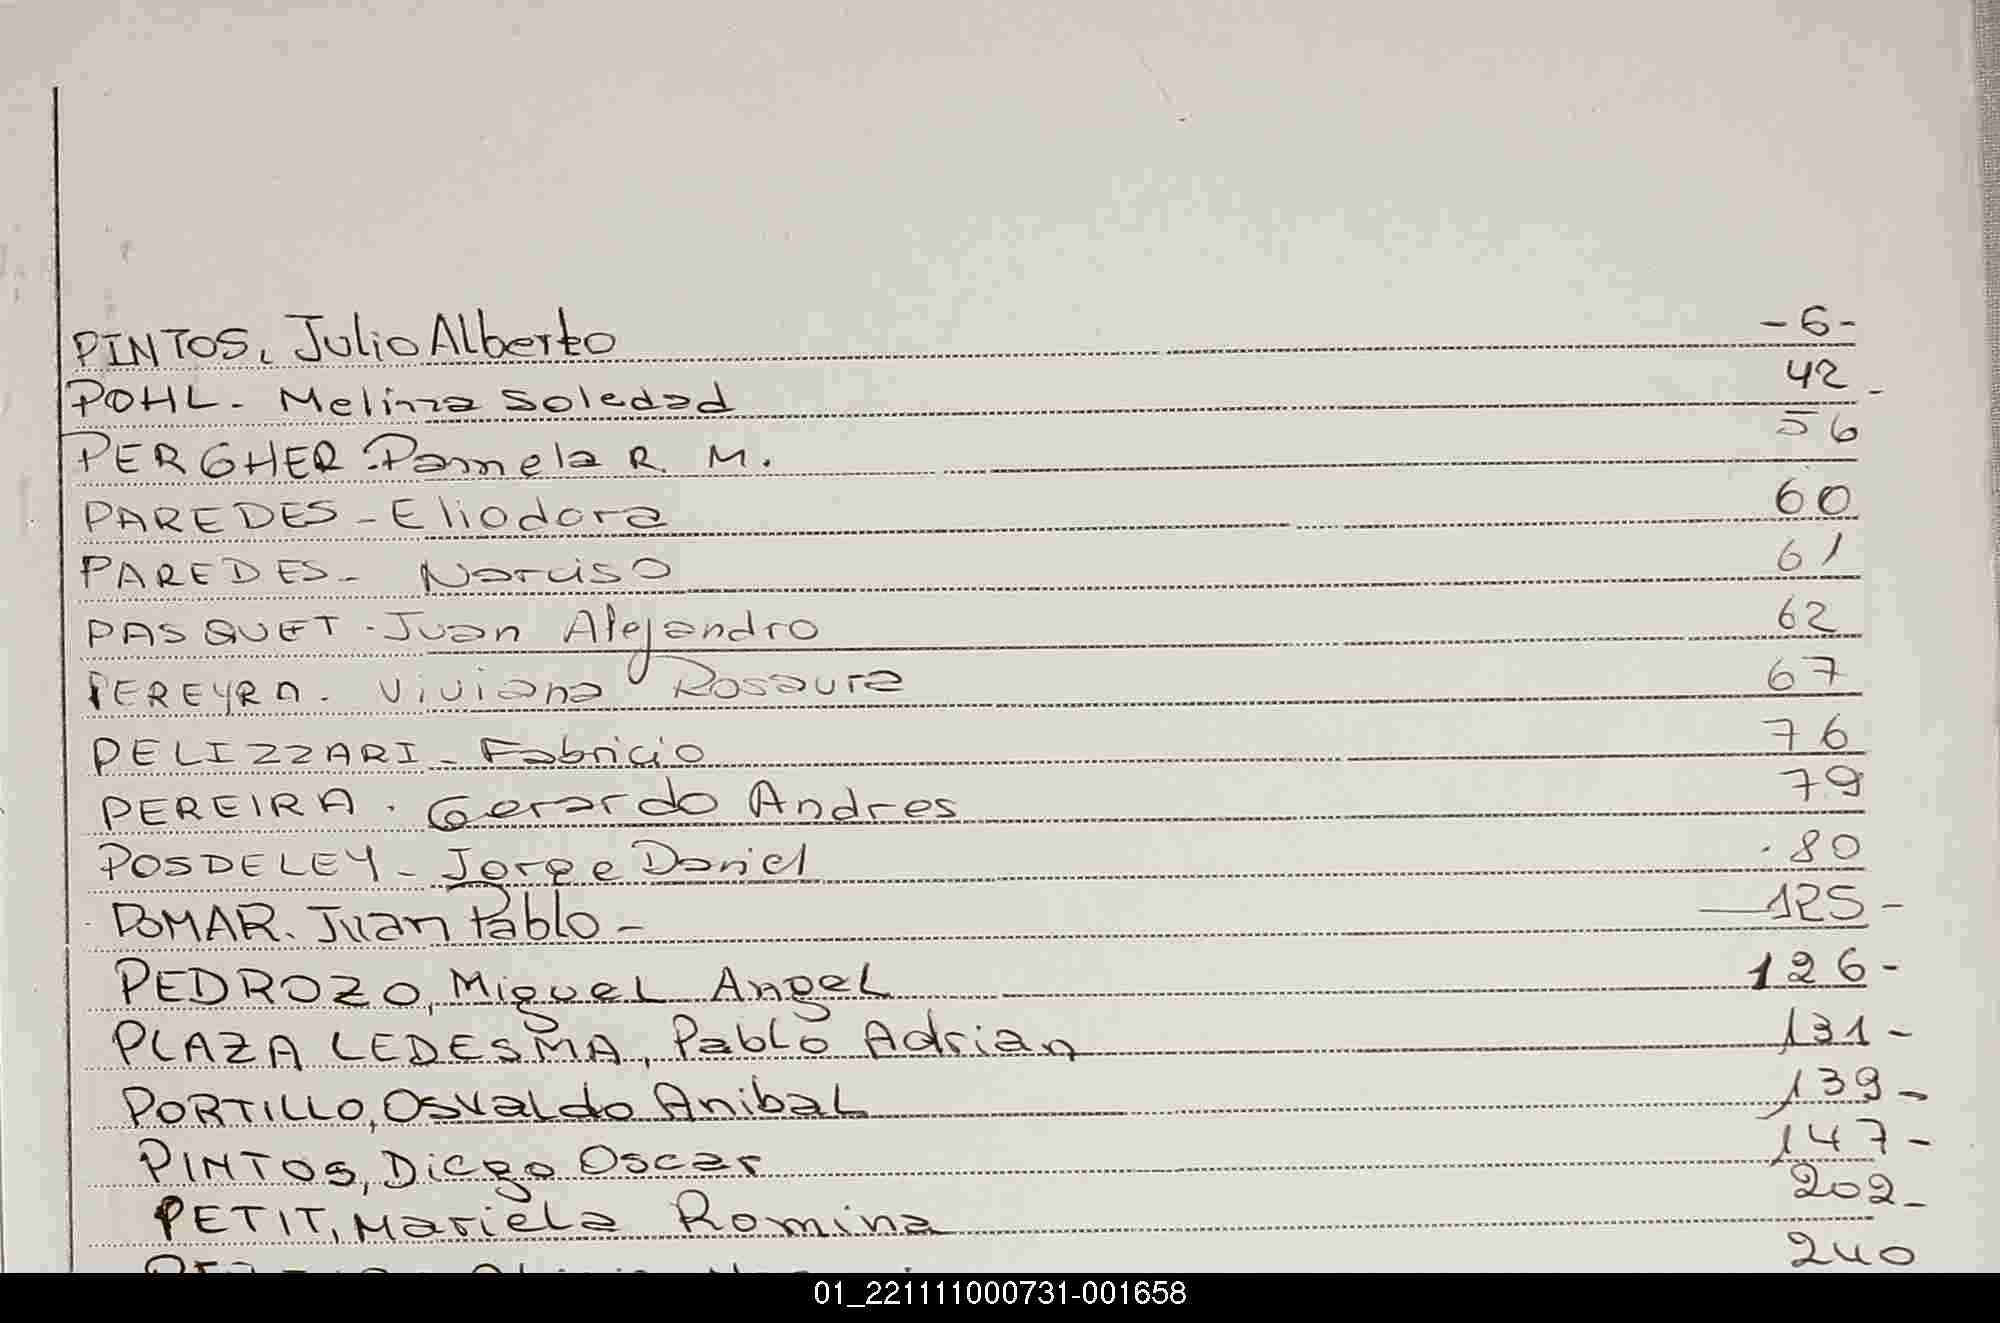 PINTOS, Julio Alberto -6-
POHL - Melinza Soledad 42 -
PERGHER. Pamela R. M. 56
PAREDES - Eliodora 60
PAREDES - Narciso 61
PASQUET - Juan Alejandro 62
PEREYRA. Viviana Rosaura 67
PELIZZARI - Fabricio 76
PEREIRA. Gerardo Andres 79
POSDELEY - Jorge Daniel 80
POMAR. Juan Pablo - 125 -
PEDROZO, Miguel Angel 126 -
PLAZA LEDESMA, Pablo Adrian 131 -
PORTILLO, Osvaldo Anibal 139 -
PINTOS, Diego Oscar 147 -
PETIT, Mariela Romina 202 -
240
01_221111000731-001658